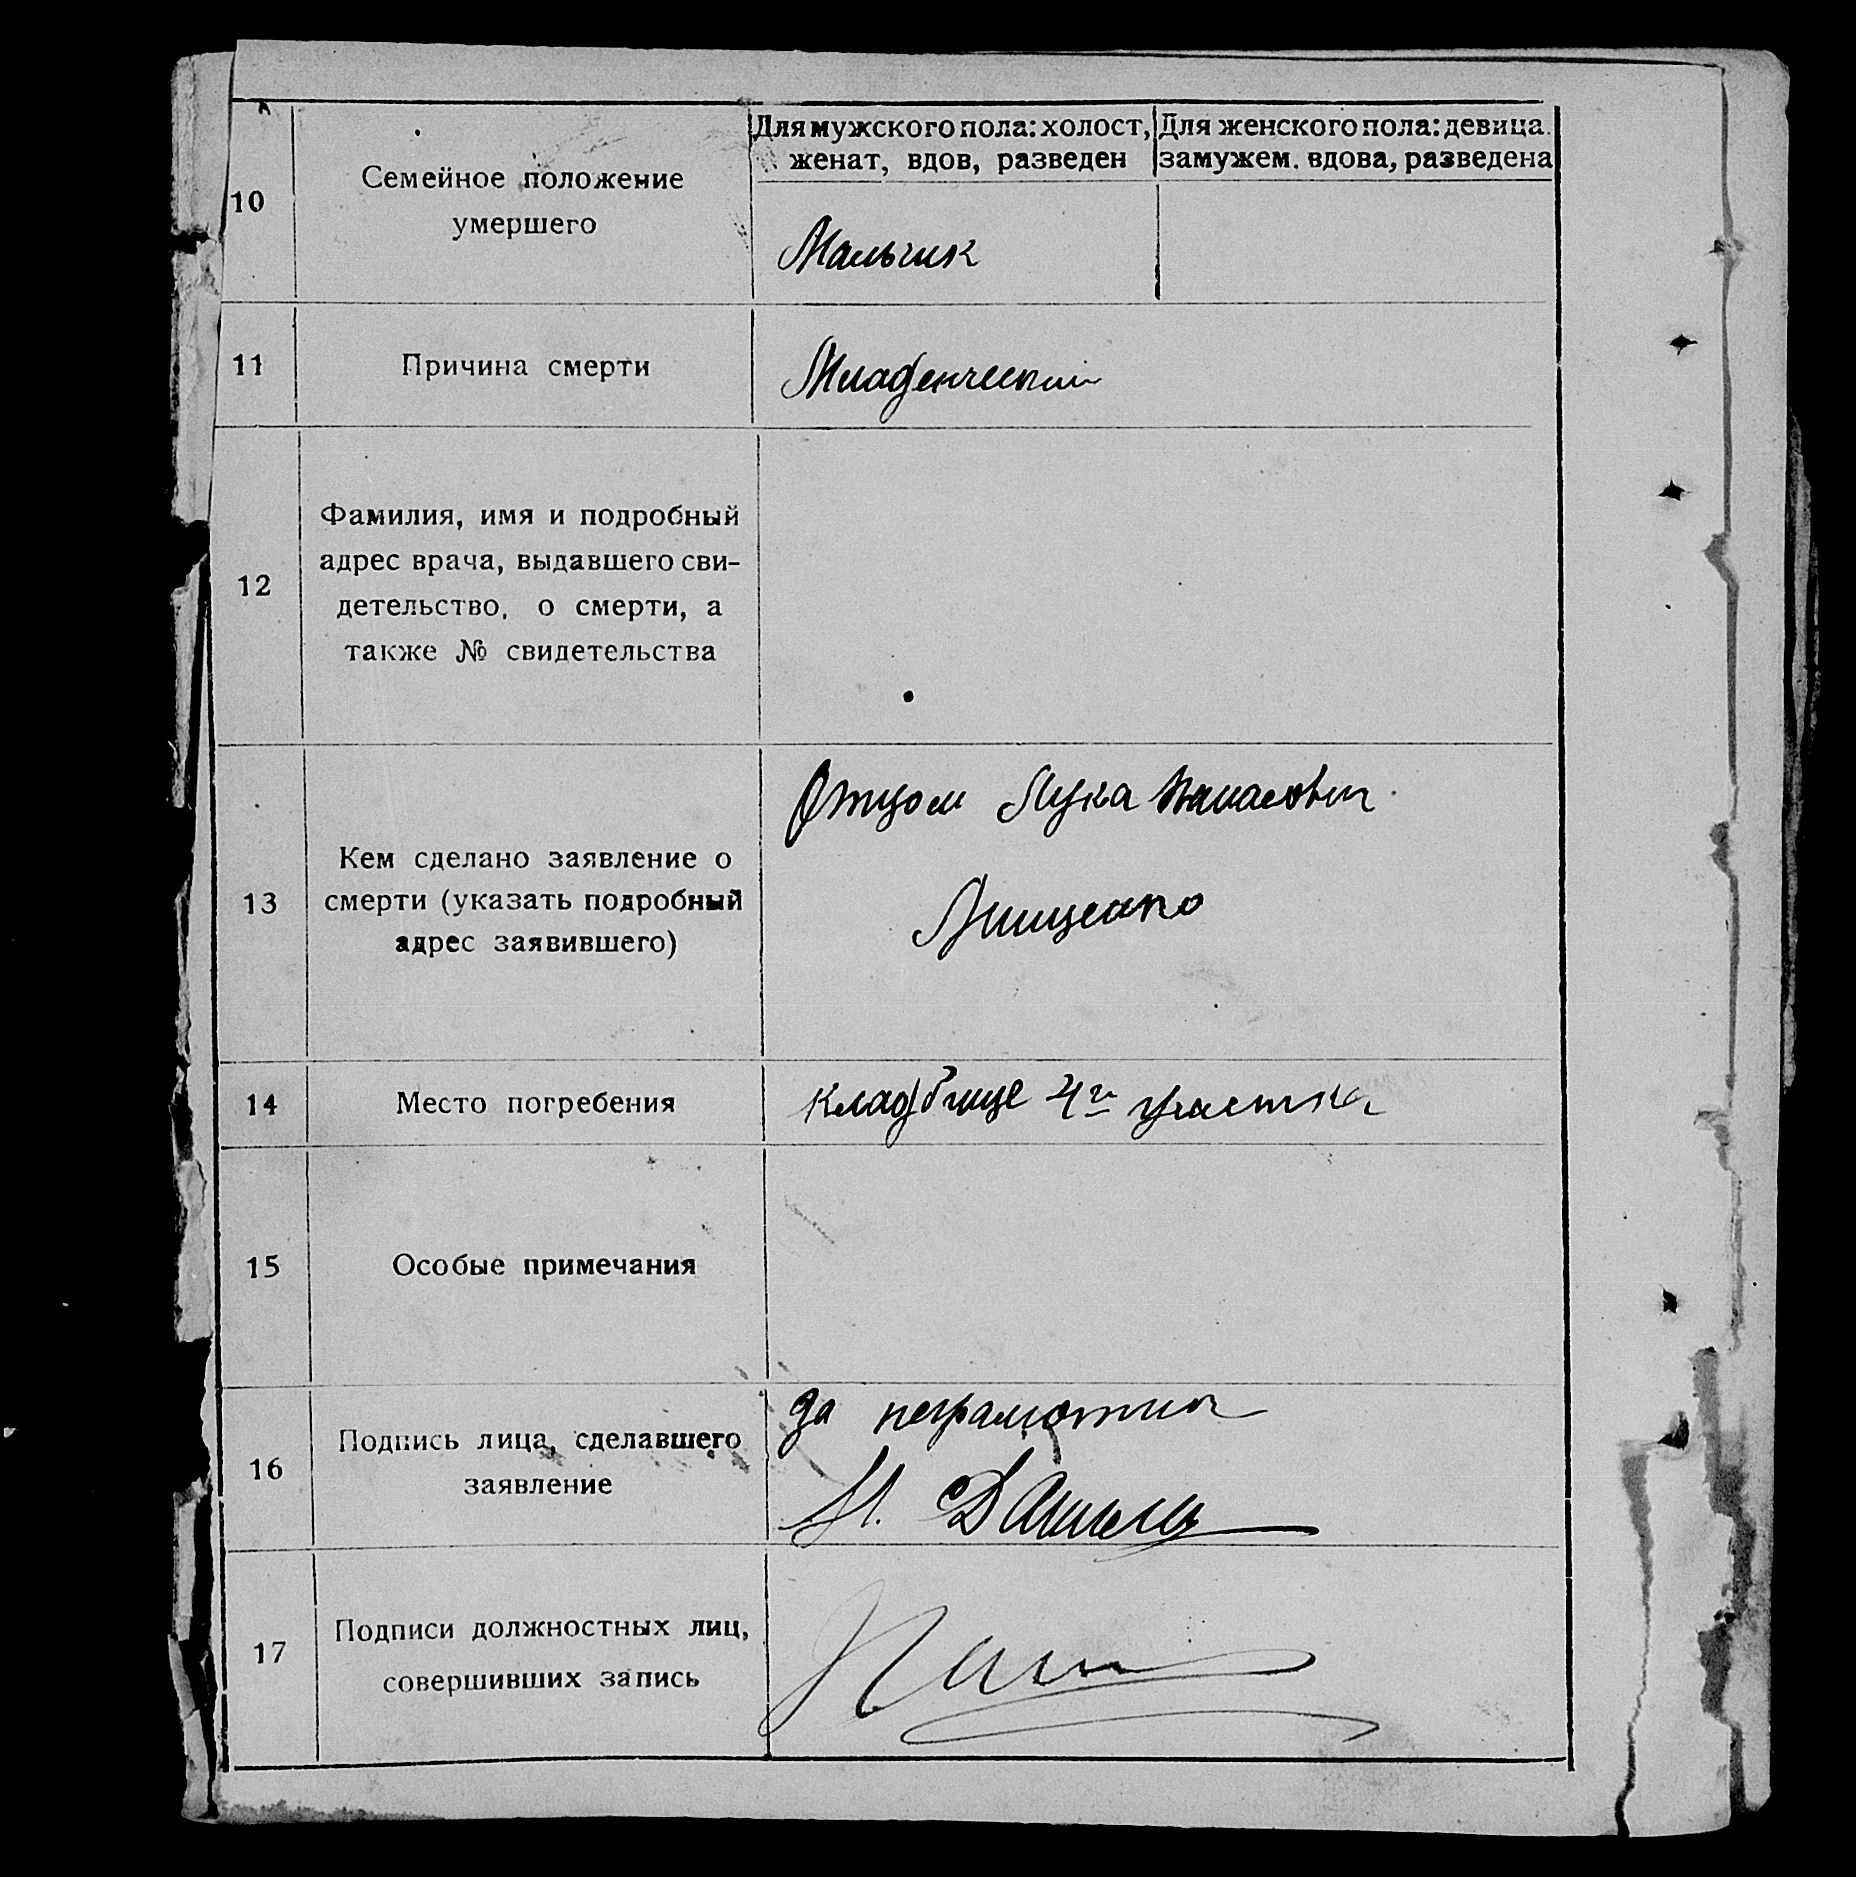 10
Семейное положение
умершего
Для мужского пола: холост,
женат, вдов, разведен
Для женского пола: девица.
замужем. вдова, разведена
Мальчик
11
Причина смерти
Младенческий
12
Фамилия, имя и подробный
адрес врача, выдавшего сви-
детельство, о смерти, а
также № свидетельства
13
Кем сделано заявление о
смерти (указать подробный
адрес заявившего)
Отцом Лука
14
Место погребения
Кладбище 4го участка
15
Особые примечания
16
Подпись лица, сделавшего
заявление
За неграмотн
17
Подписи должностных лиц,
совершивших запись